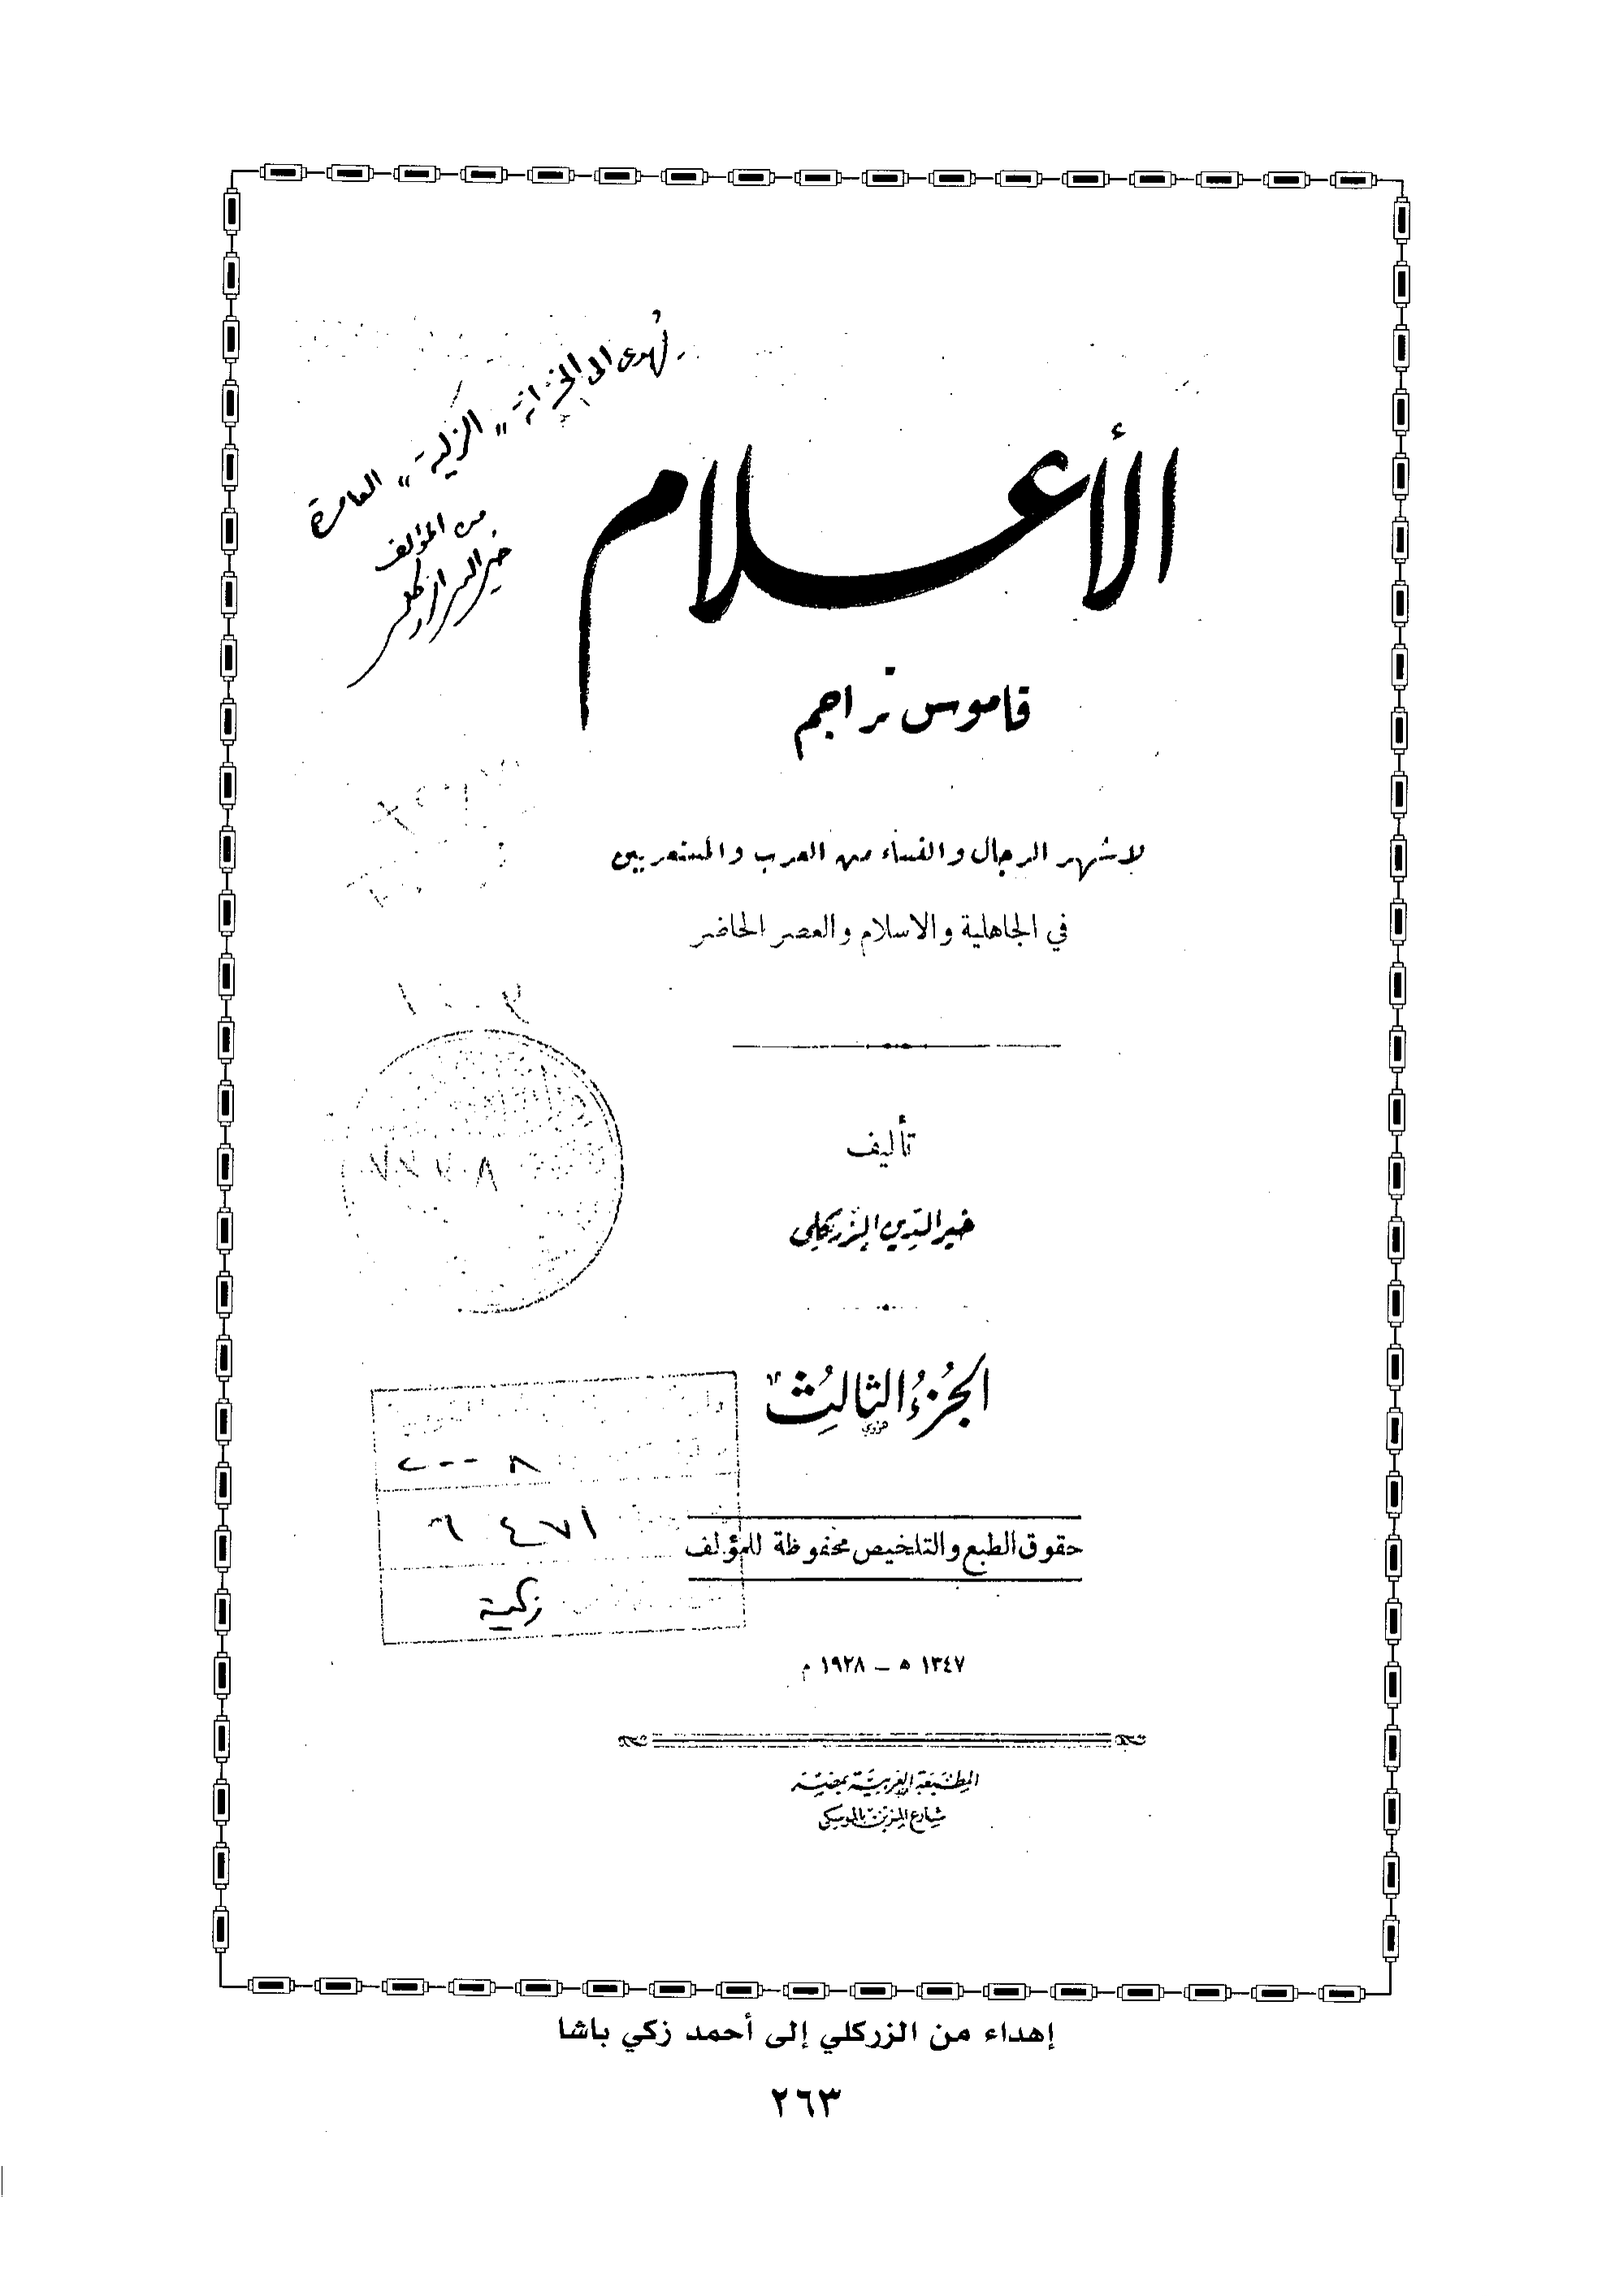 تهدى الى الخزانة
"الزكية" العامرة
من المؤلف
خير الدين الزركلي
الأعلام
قاموس تراجم
لاشهر الرجال والنساء من العرب والمستعربين
في الجاهلية والاسلام والعصر الحاضر
تأليف
خير الدين الزركلي
الجزء الثالث
حقوق الطبع والتلخيص محفوظة للمؤلف
زكية
١٣٤٧ ه – ١٩٢٨ م
المطبعة العربية بمصر
بالموسكي
شارع
إهداء من الزركلي إلى أحمد زكي باشا
٢٦٣